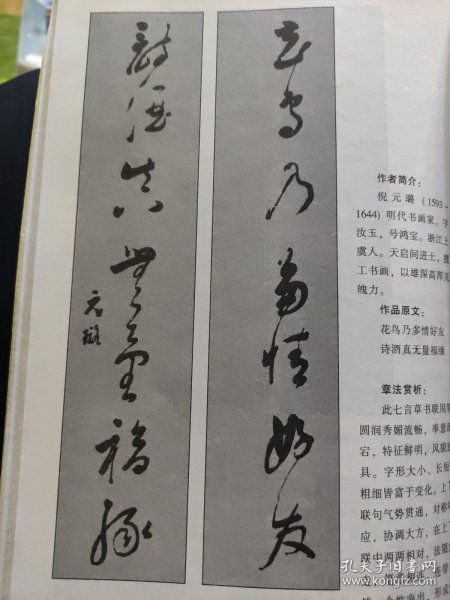 花鸟乃多情好友
诗酒真无量福缘
元璐
作者简介：
倪元璐（1593－
1644）明代书画家。字
汝玉，号鸿宝。浙江上
虞人。天启间进士。擅
工书画，以雄深高浑见
魄力。
作品原文：
花鸟乃多情好友
诗酒真无量福缘
章法赏析：
此七言草书联用笔
圆润秀媚流畅，率意
宕，特征鲜明，风貌
具。字形大小、长短
粗细皆富于变化。上下
联句气势贯通，对称
应，协调大方，在上
联中两两相对，法随
孔夫子旧书网